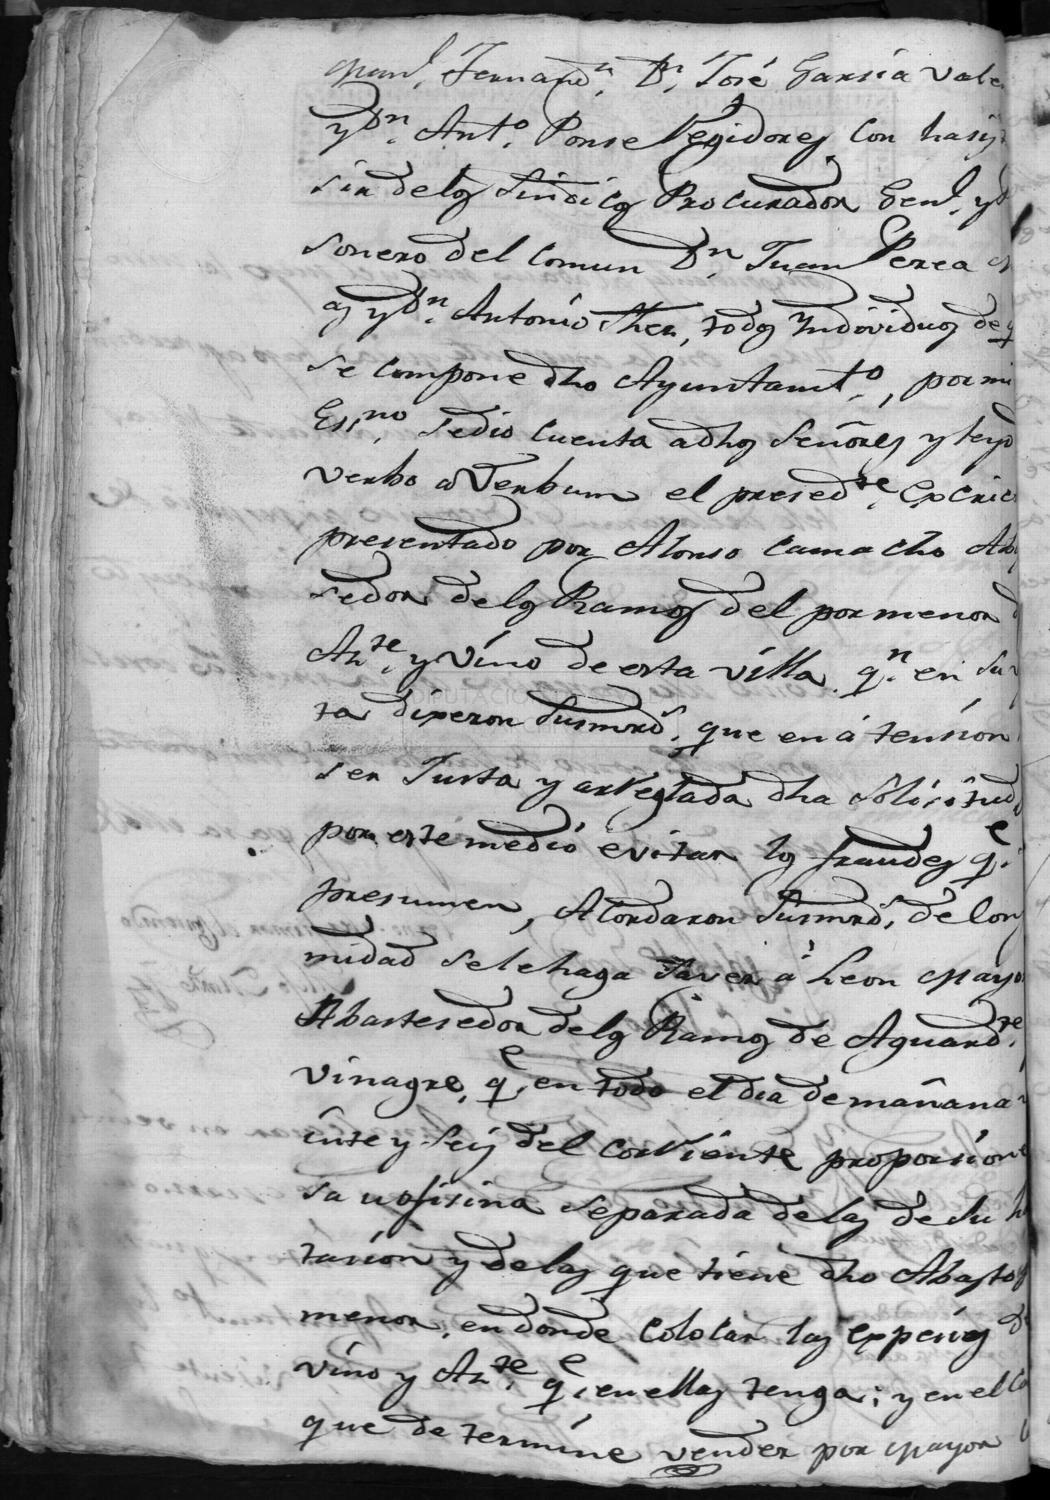 Man.l Fernand.n D.n José Garsia Vale
y D.n Ant.o Ponse Regidores con hasis
sia delos Sindicos Procurador Gen.l y
sonero del Comun D.n Juan Perea
as y D.n Antonio Ther, todos Yndividuos de q
se compone dho Ayuntamt.o, por mi
Es.no se dio cuenta a dhos Señores y leyo
verbo ad Verbum el presed.te Escri
presentado por Alonso Camacho Aba
sedor delos Ramos del por menor d
An.te y Vino de esta villa q.n en su v
ta dixeron Susmrd.s que en á tension
ser Justa y arreglada dha Solisitud
por este medio evitar los fraudes q.e
presumen, Acordaron Susmrd.s de con
midad sele haga saver á Leon Mayo
Abastesedor delos Ramos de Aguard.te
vinagre, q.e en todo el dia de mañana v
inte y seis del corriente proporsione
sa u ofisina separada delas de su h
tasion y delas que tiene dho Abasto
menor, en donde colocar las expesies d
vino y An.te q.e en ellas tenga; y en el ca
que determine vender por mayor